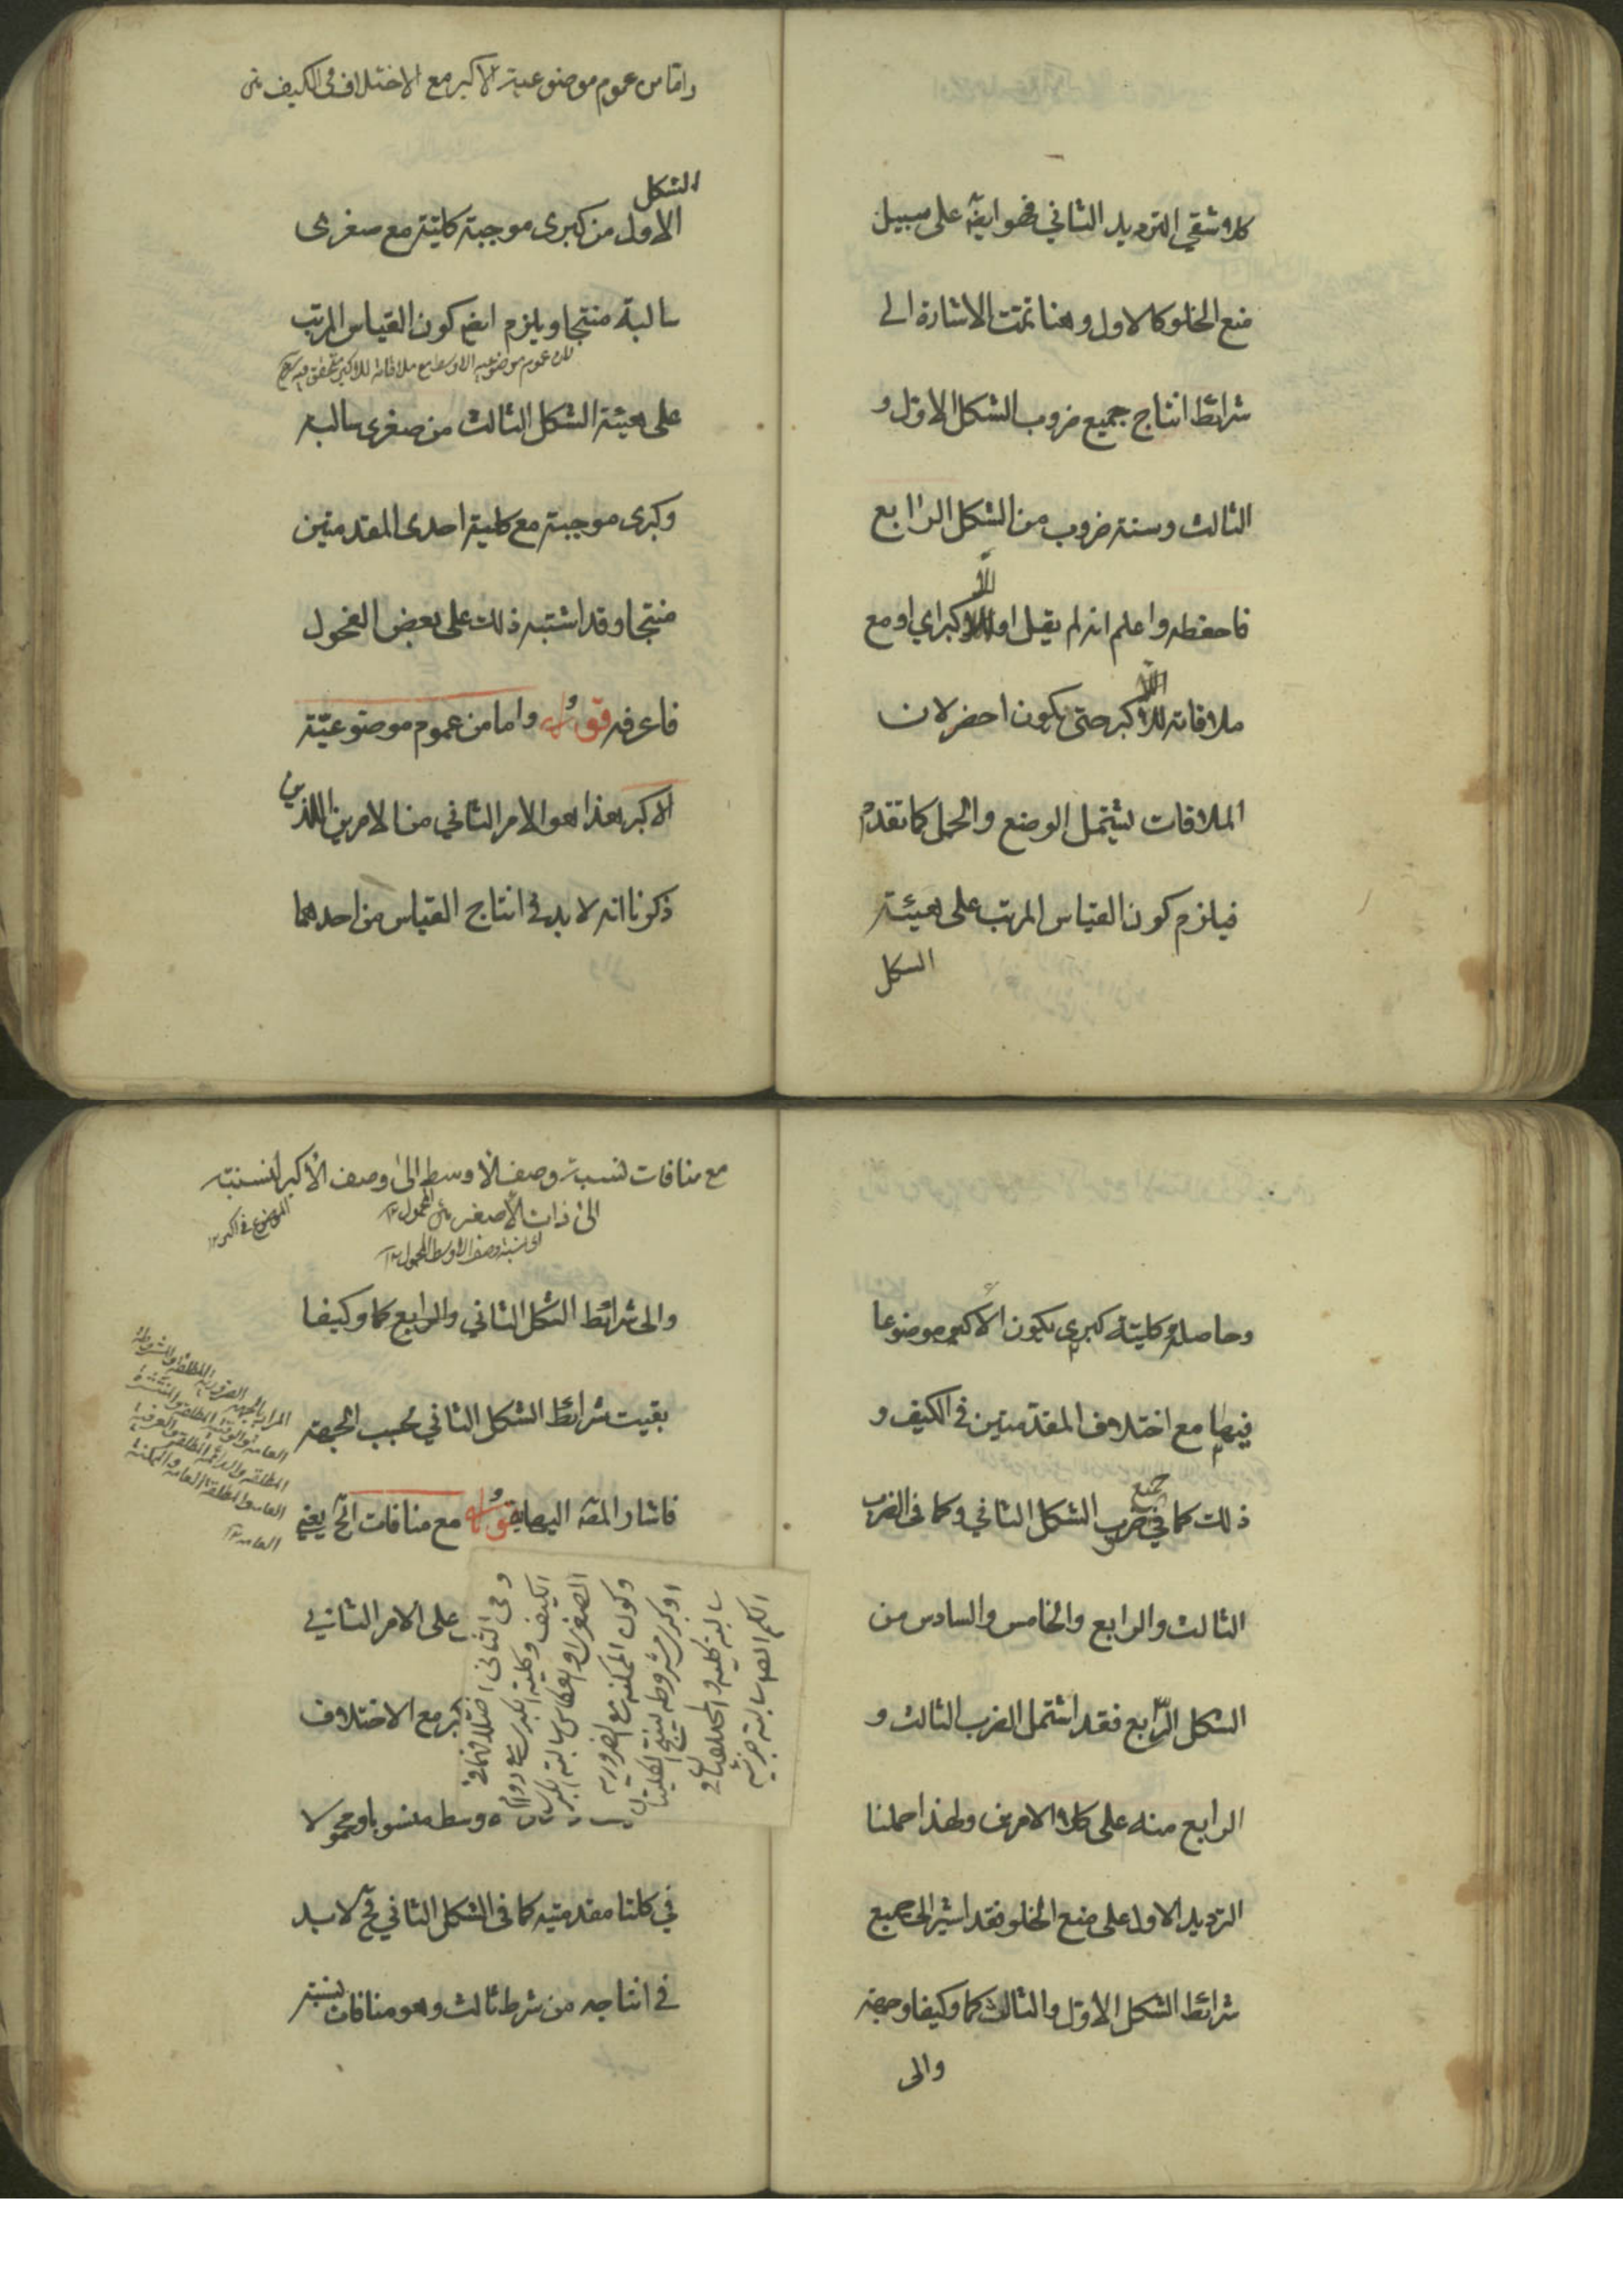 كلا شقي الترديد الثاني فهو ايضا على سبيل
منع الخلو كالاول وهنا تمت الاشارة الى
شرائط انتاج جميع ضروب الشكل الاول و
الثالث وستة ضروب من الشكل الرابع
فاحفظه واعلم انه لم يقل او للاكبر اي او مع
ملاقاته للاكبر حتى يكون اخصر لان
الملاقات ليشتمل الوضع والحمل كما تقدم
فيلزم كون القياس المرتب على هيئة
الشكل
واما من عموم موضوعية الاكبر مع الاختلاف في الكيف
الشكل
الاول من كبرى موجبة كلية مع صغرى
سالبة منتجا ويلزم ايضا كون القياس المرتب
لان عموم موضوعية الاوسط مع ملاقاته للاكبر متحقق فيه
على هيئة الشكل الثالث من صغرى سالبة
وكبرى موجبة مع كلية احدى المقدمتين
منتجا وقد اشتبه ذلك على بعض الفحول
فاعرفه قوله واما من عموم موضوعية
الاكبر هذا هو الامر الثاني من الامرين اللذين
ذكرنا انه لا بد في انتاج القياس من احدهما
وحاصله كلية كبرى يكون الاكبر موضوعا
فيها مع اختلاف المقدمتين في الكيف و
ذلك كما في جميع ضرب الشكل الثاني وكما في الضرب
الثالث والرابع والخامس والسادس من
الشكل الرابع فقد اشتمل الضرب الثالث و
الرابع منه على كلا الامرين ولهذا حملنا
الترديد الاول على منع الخلو فقد اشير الى جميع
شرائط الشكل الاول والثالث كما وكيفا وجهة
والى
مع منافات نسبة وصف الاوسط الى وصف الاكبر لنسبته
الى ذات الاصغر
الموضوع في الكبرى ١٢
اى نسبة وصف الاوسط المحمول ١٢
والى شرائط الشكل الثاني والرابع كما وكيفا
بقيت شرائط الشكل الثاني بحسب الجهة
فاشار المصـ اليها بقوله مع منافات الخ يعني
على الامر الثاني
كبر مع الاختلاف
وسط منسوبا ومحمولا
في كلتا مقدمتيه كما في الشكل الثاني فح لا بد
في انتاجه من شرط ثالث وهو منافات نسبة
المراد بالجهة الضرورية المطلقة والمشروطة
العامة والوقتية المطلقة والمنتشرة
المطلقة والدائمة المطلقة والعرفية
العامة والمطلقة العامة والممكنة
العامة ١٢
وفى الثانى اختلافهما فى
الكيف وكلية الكبرى مع دوام
الصغرى او انعكاس سالبة الكبرى
وكون الممكنة مع الضرورية
او كبرى مشروطة لينتج الكليتان
سالبة كلية والمختلفتان فى
الكم ايضا سالبة جزئية